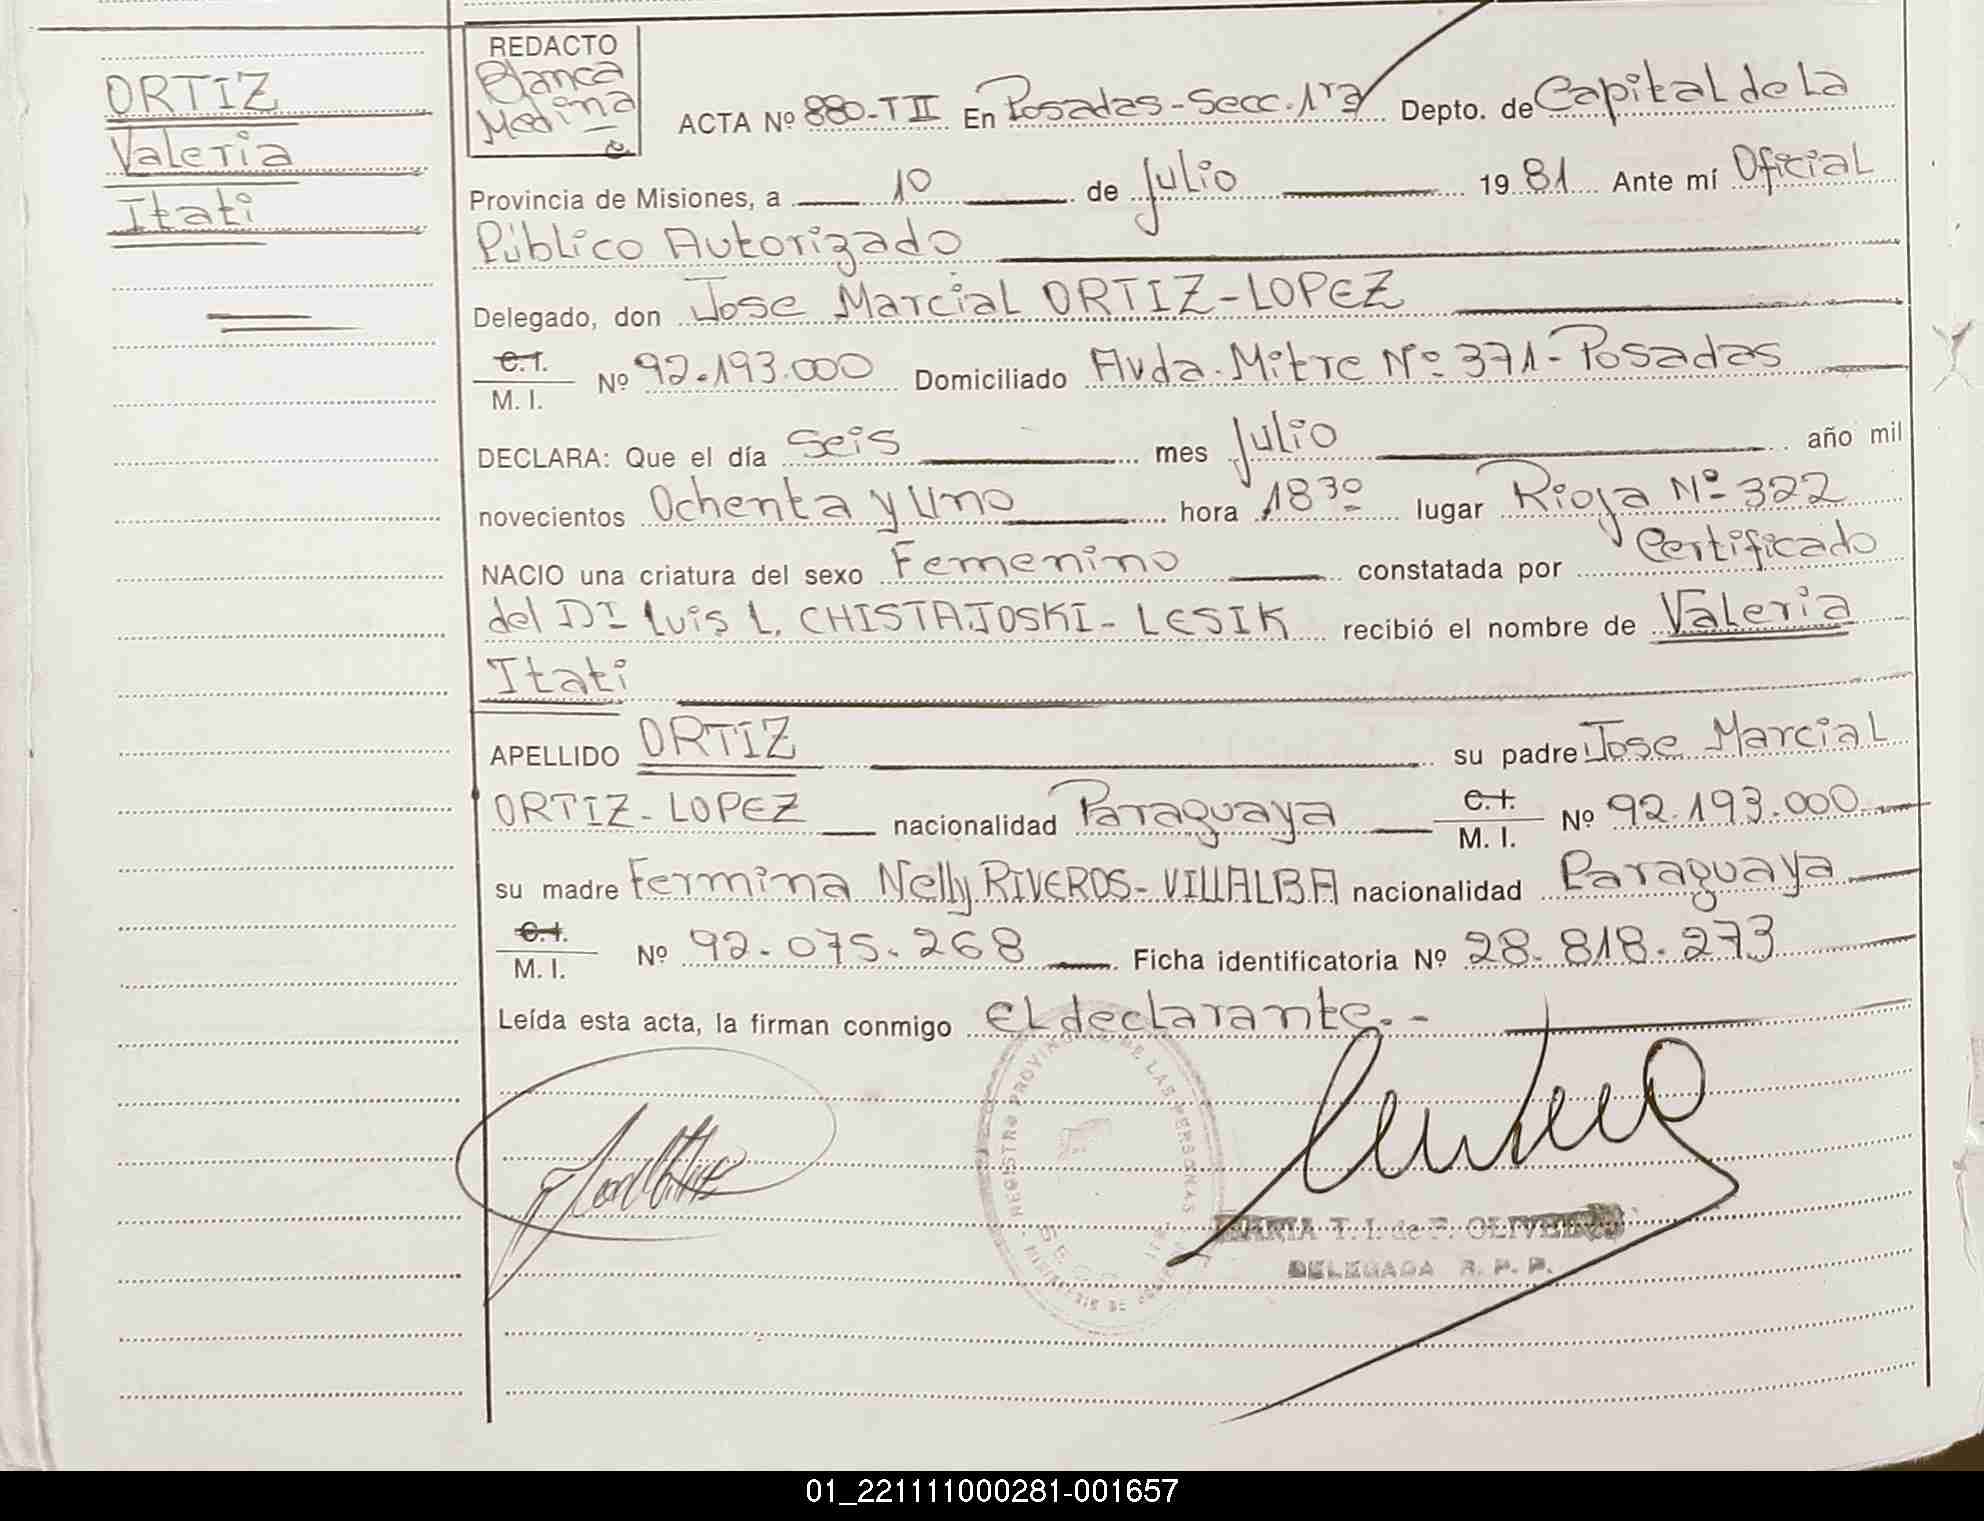 ORTIZ
Valeria
Itati
REDACTO
Blanca
Medina
ACTA Nº 880-TII En Posadas-Secc.1ra Depto. de Capital de La
Provincia de Misiones, a 10 de Julio 1981 Ante mí Oficial
Público Autorizado
Delegado, don Jose Marcial ORTIZ-LOPEZ
C.I.
M. I. Nº 92.193.000 Domiciliado Avda. Mitre Nº 371-Posadas
DECLARA: Que el día Seis mes Julio año mil
novecientos Ochenta y Uno hora 18 30 lugar Rioja Nº 322
NACIO una criatura del sexo Femenino constatada por Certificado
del Dr Luis L. CHISTAJOSKI-LESIK recibió el nombre de Valeria
Itati
APELLIDO ORTIZ su padre Jose Marcial
ORTIZ-LOPEZ nacionalidad Paraguaya C.I. M. I. Nº 92.193.000
su madre Fermina Nelly RIVEROS-VILLALBA nacionalidad Paraguaya
C.I.
M. I. Nº 92.075.268 Ficha identificatoria Nº 28.818.273
Leída esta acta, la firman conmigo el declarante.-
REGISTRO PROVINCIAL DE LAS PERSONAS
MARIA T. I. de F. OLIVEIRA
DELEGADA R. P. P.
01_221111000281-001657